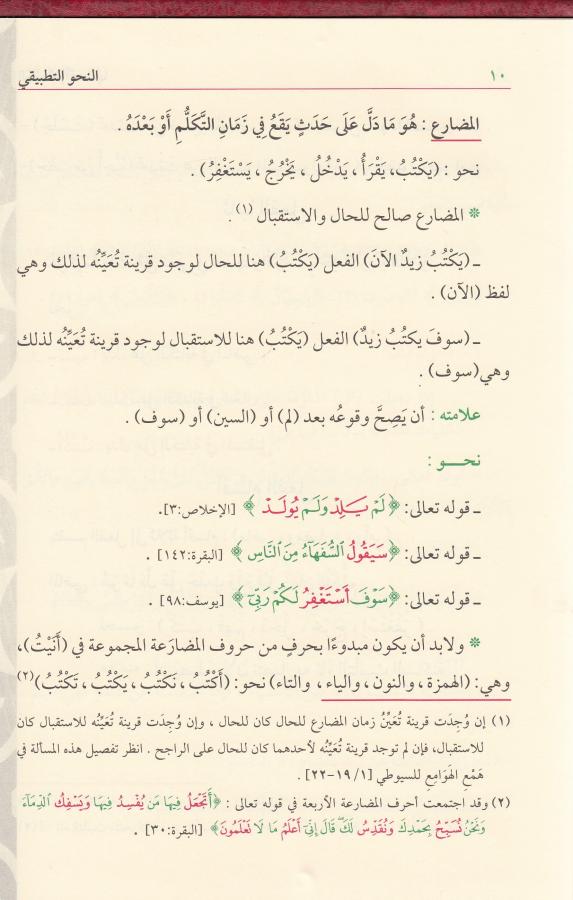 ١٠ النحو التطبيقي
المضارع : هُوَ مَا دَلَّ عَلَى حَدَثٍ يَقَعُ فِي زَمَانِ التَّكَلُّمِ أَوْ بَعْدَهُ .
نحو : (يَكْتُبُ، يَقْرَأُ ، يَدْخُلُ ، يَخْرُجُ ، يَسْتَغْفِرُ) .
* المضارع صالح للحال والاستقبال (١) .
ـ (يَكْتُبُ زيدٌ الآنَ) الفعل (يَكْتُبُ) هنا للحال لوجود قرينة تُعَيِّنُه لذلك وهي
لفظ (الآن) .
ـ (سوفَ يكتُبُ زيدٌ) الفعل (يَكْتُبُ) هنا للاستقبال لوجود قرينة تُعَيِّنُه لذلك
وهي(سوف) .
علامته : أن يَصِحَّ وقوعُه بعد (لم) أو (السين) أو (سوف) .
نحـــو :
ـ قوله تعالى: ﴿لَمْ يَلِدْ وَلَمْ يُولَدْ﴾ [الإخلاص:٣].
ـ قوله تعالى: ﴿سَيَقُولُ السُّفَهَآءُ مِنَ النَّاسِ﴾ [البقرة:١٤٢] .
ـ قوله تعالى: ﴿سَوْفَ أَسْتَغْفِرُ لَكُمْ رَبِّيٓ﴾ [يوسف:٩٨] .
* ولابد أن يكون مبدوءًا بحرفٍ من حروف المضارَعة المجموعة في (أَنَيْتُ)،
وهي: (الهمزة ، والنون ، والياء ، والتاء) نحو: (أَكْتُبُ ، نَكْتُبُ ، يَكْتُبُ ، تَكْتُبُ)(٢)
(١) إن وُجِدَت قرينة تُعَيِّنُ زمان المضارع للحال كان للحال ، وإن وُجِدَت قرينة تُعَيِّنُه للاستقبال كان
للاستقبال، فإن لم توجد قرينة تُعَيِّنُه لأحدهما كان للحال على الراجح . انظر تفصيل هذه المسألة في
هَمْعِ الهَوَامِعِ للسيوطي [١/ ١٩-٢٢] .
(٢) وقد اجتمعت أحرف المضارعة الأربعة في قوله تعالى : ﴿أَتَجْعَلُ فِيهَا مَن يُفْسِدُ فِيهَا وَيَسْفِكُ الدِّمَآءَ
وَنَحْنُ نُسَبِّحُ بِحَمْدِكَ وَنُقَدِّسُ لَكَ قَالَ إِنِّيٓ أَعْلَمُ مَا لَا تَعْلَمُونَ﴾ [البقرة:٣٠] .